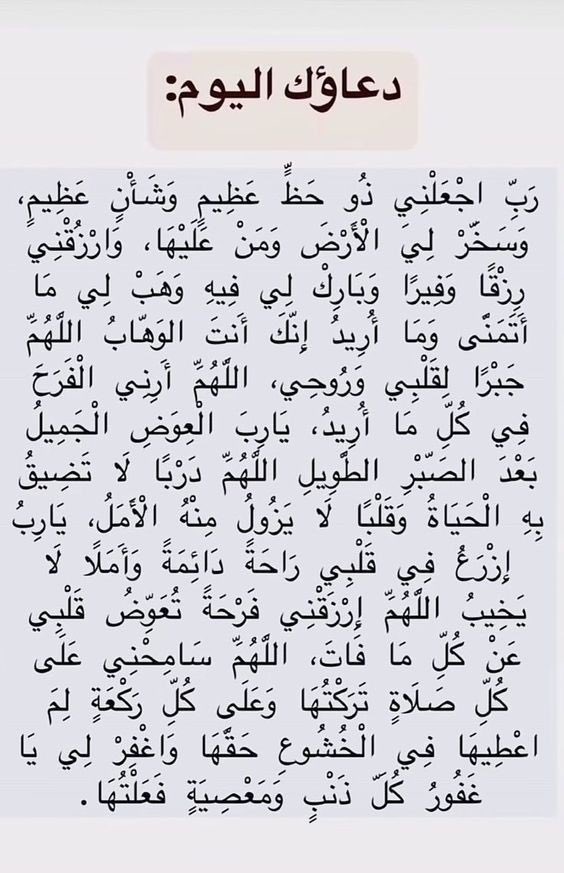 دعاؤك اليوم:
رَبِّ اجْعَلْنِي ذُو حَظٍّ عَظِيمٍ وَشَأْنٍ عَظِيمٍ،
وَسَخّرْ لِيَ الْأَرْضَ وَمَنْ عَلَيْهَا، وَارْزُقْنِي
رِزْقًا وَفِيرًا وَبَارِكْ لِي فِيهِ وَهَبْ لِي مَا
أَتَمَنَّى وَمَا أُرِيدُ إِنَّكَ أَنتَ الوَهّابُ اللَّهُمّ
جَبْرًا لِقَلْبِي وَرُوحِي، اللَّهُمّ أَرِنِي الْفَرَحَ
فِي كُلِّ مَا أُرِيدُ، يَارِبَ الْعِوَضِ الْجَمِيلُ
بَعْدَ الصّبْرِ الطّوِيلِ اللَّهُمّ دَرْبًا لَا تَضِيقُ
بِهِ الْحَيَاةُ وَقَلْبًا لَا يَزُولُ مِنْهُ الْأَمَلُ، يَارِبُ
إِزْرَعُ فِي قَلْبِي رَاحَةً دَائِمَةً وَأَمَلًا لَا
يَخِيبُ اللَّهُمّ إِرْزَقْنِي فَرْحَةً تُعَوّضُ قَلْبِي
عَنْ كُلِّ مَا فَاتَ، اللَّهُمّ سَامِحْنِي عَلَى
كُلِّ صَلَاةٍ تَرَكْتُهَا وَعَلَى كُلِّ رَكْعَةٍ لِمَ
اعْطِيهَا فِي الْخُشُوعِ حَقّهَا وَاغْفِرْ لِي يَا
غَفُورُ كُلّ ذَنْبٍ وَمَعْصِيَةٍ فَعَلْتُهَا.